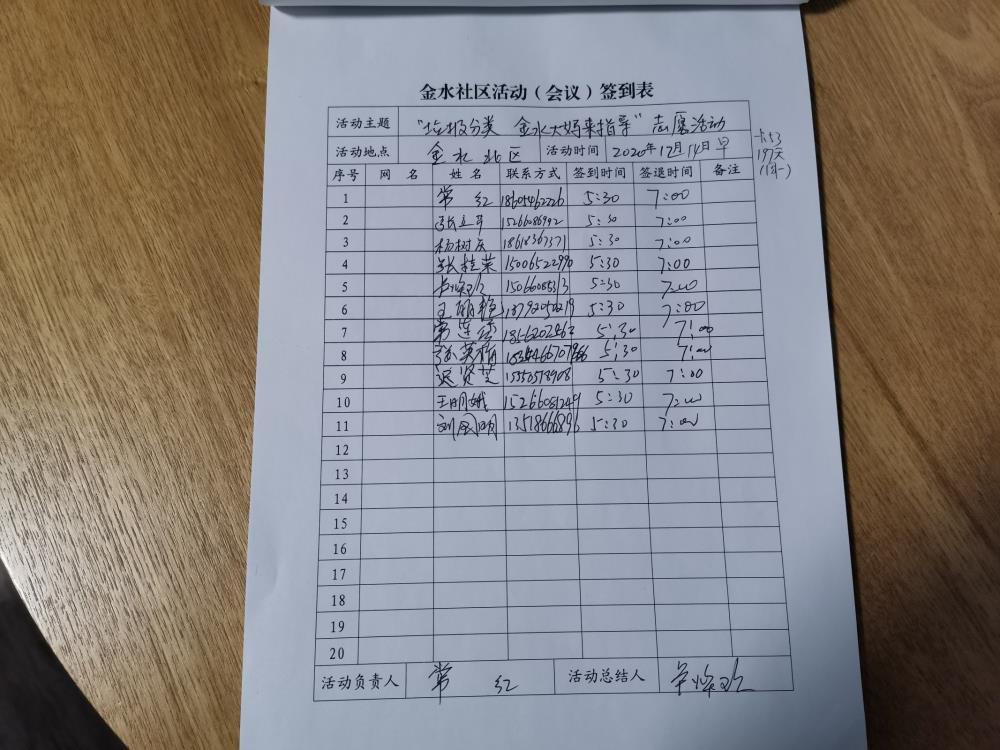 金水社区活动（会议）签到表
活动主题 “垃圾分类 金水大妈来指导”志愿活动
活动地点 金水北区 活动时间 2020年12月14日早
197天
序号 网名 姓名 联系方式 签到时间 签退时间 备注
1 常红 18605462226 5:30 7:00
2 15266086992 5:30 7:00
3 杨树庆 18618367371 5:30 7:00
4 张桂荣 15006522990 5:30 7:00
5 15066085313 5:30 7:00
6 王丽艳 5:30 7:00
7 常莲 5:30 7:00
8 张英 5:30 7:00
9 迟贤芝 15550578908 5:30 7:00
10 王明娥 15266081249 5:30 7:00
11 刘金明 13518666896 5:30 7:00
12
13
14
15
16
17
18
19
20
活动负责人 常红 活动总结人